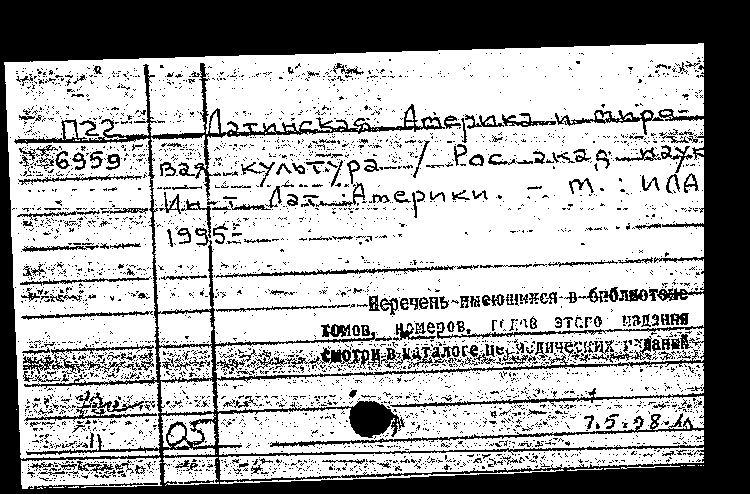 П22 Латинская Америка и миро-
6959 вая культура / Рос. акад. наук
Ин-т Лат. Америки. - М.: ИЛА
1995-
Перечень имеющихся в библиотеке
томов, номеров, годов этого издания
смотри в каталоге периодических изданий
11 05 7.5.98